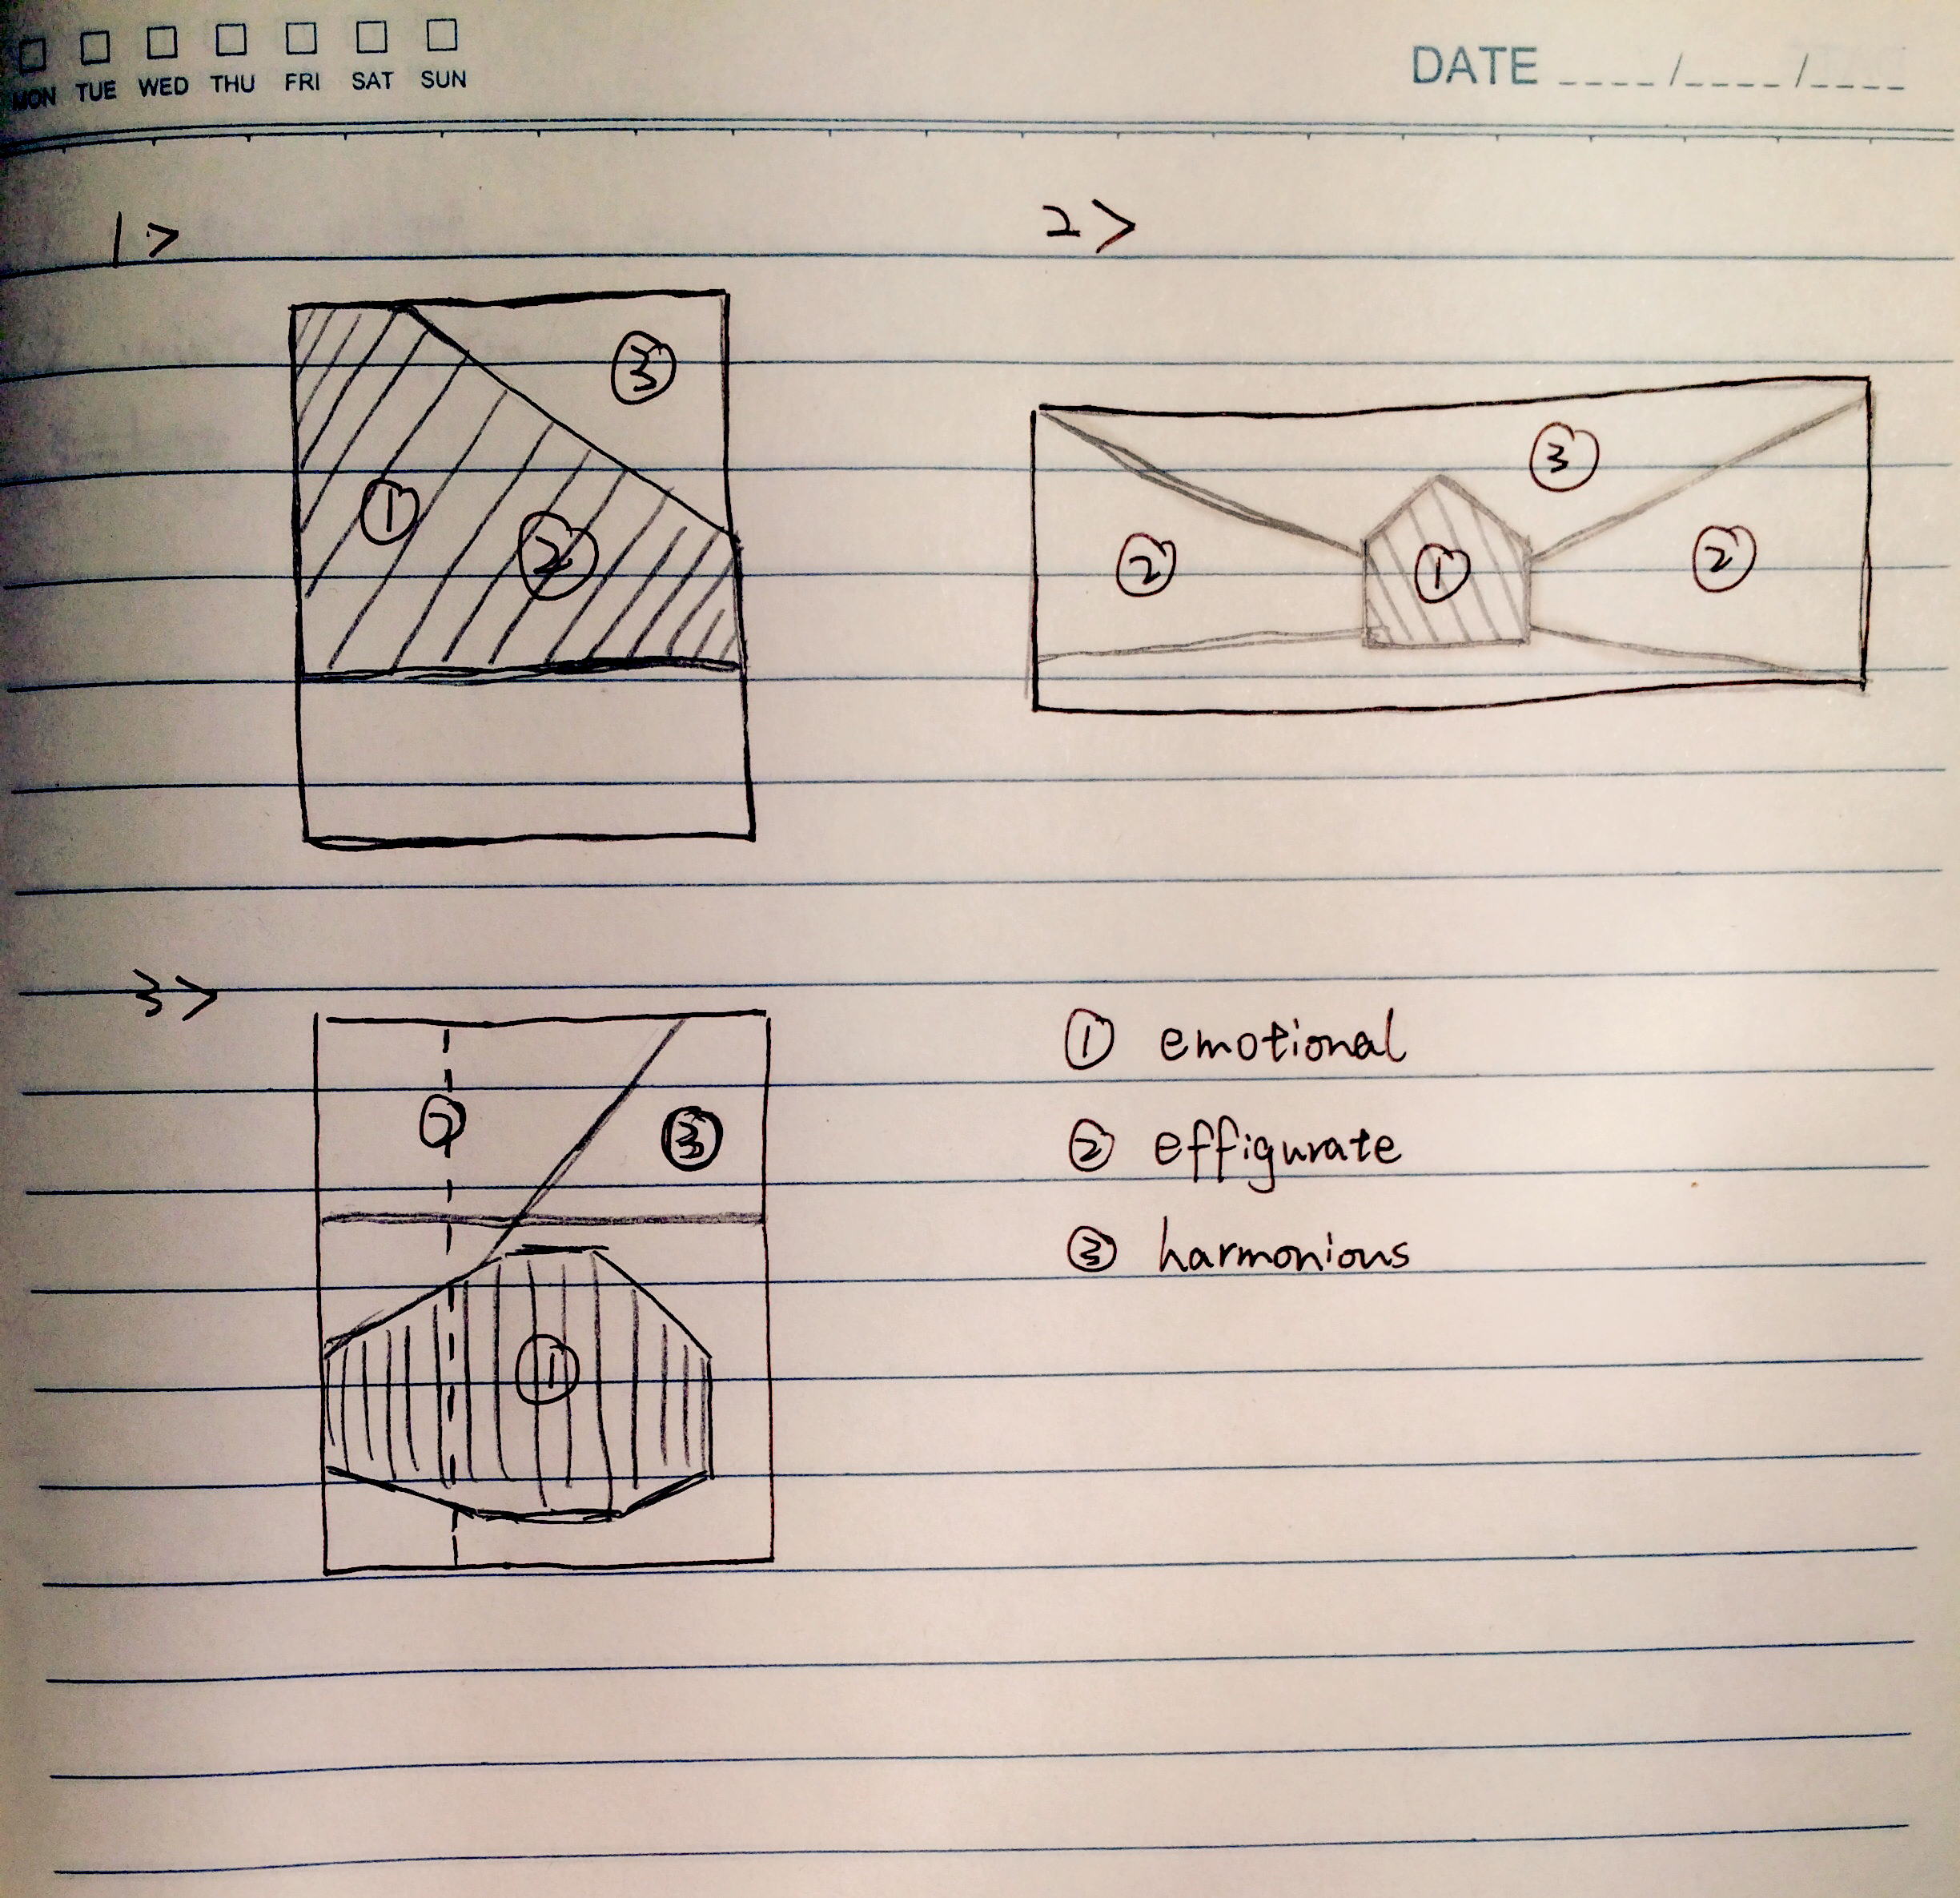 MON TUE WED THU FRI SAT SUN
DATE ____/____/____
1>
2>
③
① ②
③
② ① ②
3>
② ③
①
① emotional
② effigurate
③ harmonious